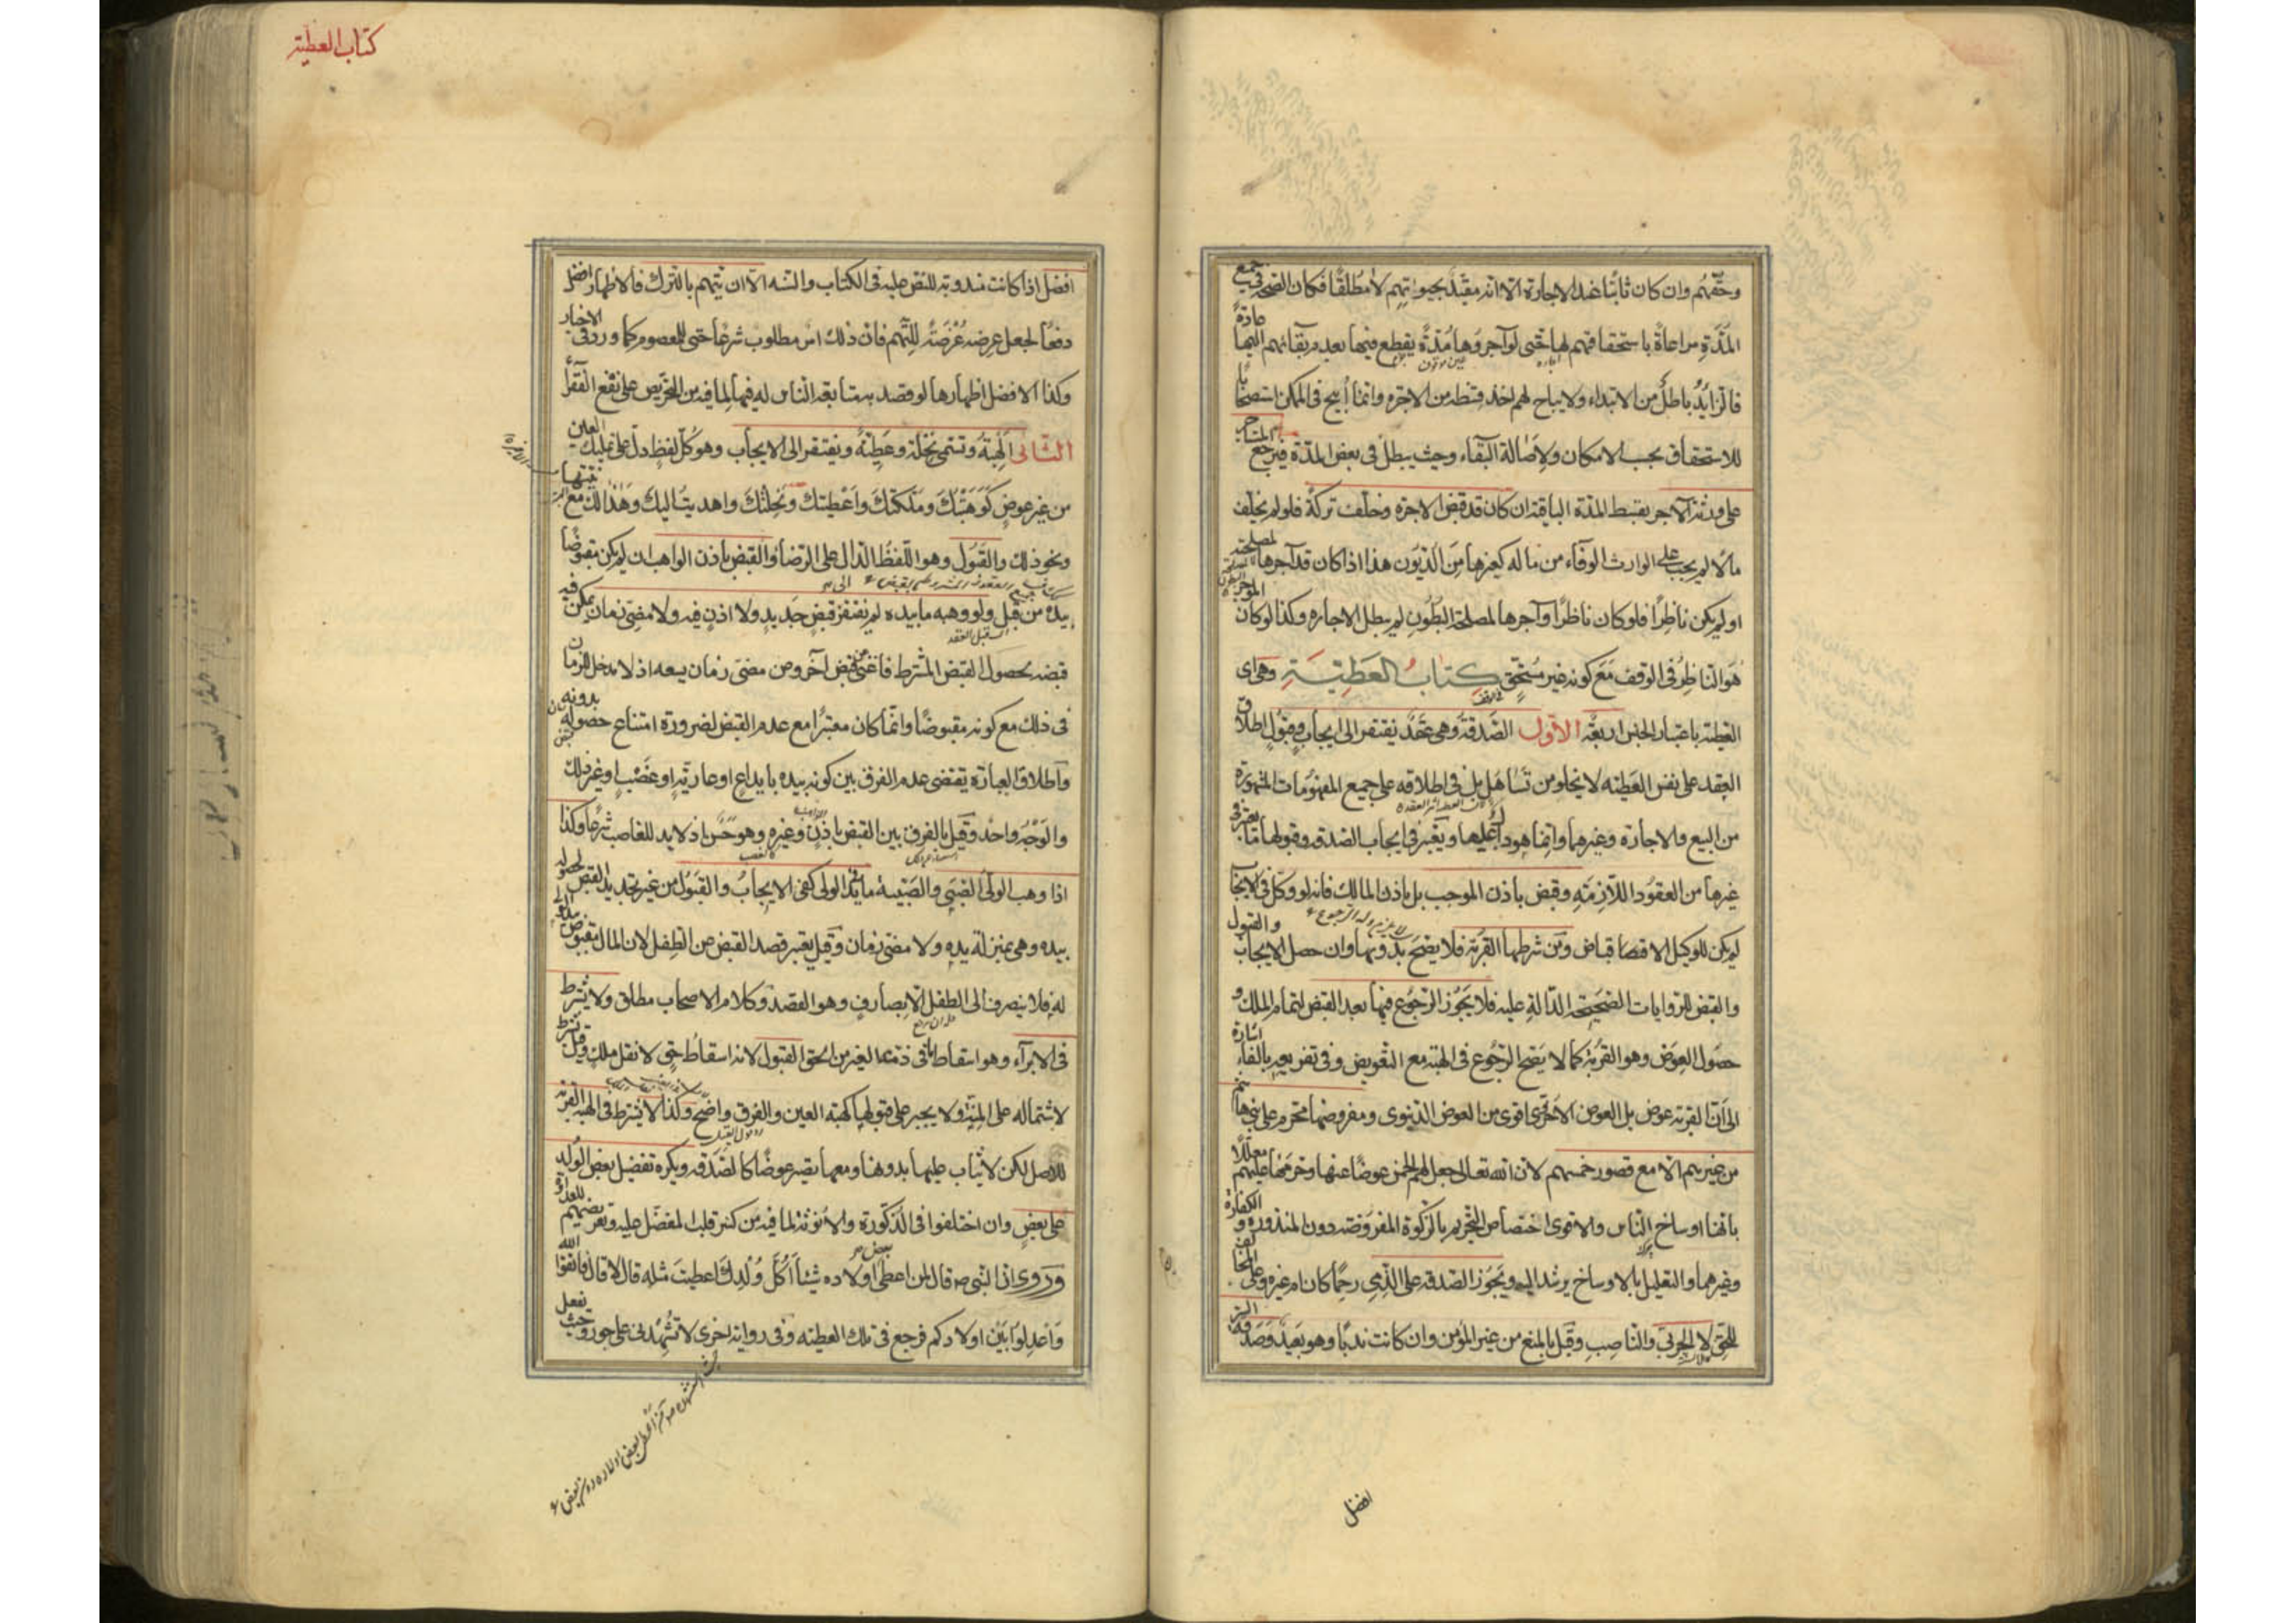 وحقّهم وان كان ثابتًا عند الاجارة الا انه مقيّد بحيوتهم لا مطلقًا فكان الصحة في جميع
المدّة مراعاةً باستحقاقهم لها حتى لو آجروها مدّة يقطع فيها بعدم بقائهم اليها عادةً
فالزايدُ باطلٌ من الابتداء ولا يباح لهم اخذ قسطه من الاجرة وانما أبيح في الممكن استصحابًا
للاستحقاق بحسب الامكان ولاصالة البقاء وحيث يبطل في بعض المدّة فيرجع المستاجر
على ورثة الآجر بقسط المدّة الباقية ان كان قد قبض الاجرة وخلّف تركةً فلو لم يخلّف
مالًا لم يجب على الوارث الوفاء من ماله كغيرها من الديون هذا اذا كان قد آجرها لمصلحته
او لم يكن ناظرًا فلو كان ناظرًا وآجرها لمصلحة البطون لم يبطل الاجاره وكذا لو كان الموجر
هو الناظر في الوقف مع كونه غير مستحق كتاب العطيّة وهي اى
العطية باعتبار الجنس اربعة الاوّل الصّدقة وهي عقد يفتقر الى ايجاب وقبول اطلاق
العقد على نفس العطيّة لا يخلو من تساهل بل في اطلاقه على جميع المفهومات المشهورة
من البيع والاجارة وغيرهما وانما هو دالّ عليها ويعتبر في ايجاب الصدقه وقبولها ما يعتبر في
غيرها من العقود اللازمة وقبض باذن الموجب بل باذن المالك فانه لو وكّل في الايجاب
لم يكن للوكيل الاقباض ومن شرطها القربة فلا يصحّ بدونها وان حصل الايجاب والقبول
والقبض للروايات الصحيحة الدّالة عليه فلا يجوز الرجوع فيها بعد القبض لتمام الملك و
حصول العوض وهو القربة كما لا يصح الرجوع في الهبة مع التعويض وفي تفريعه بالفاء اشارة
الى انّ القربة عوض بل العوض الاخروى اقوى من العوض الدنيوى ومفروضها محرم على بني هاشم
من غيرهم الا مع قصور خمسهم لان الله تعالى جعل لهم الخمس عوضًا عنها وحرّمها عليهم معللًا
بانها اوساخ الناس والاقوى اختصاص التحريم بالزكوة المفروضة دون المنذورة والكفارة
وغيرهما والتعليل بالاوساخ يرشد اليه ويجوز الصدقه على الذمي رحمًا كان ام غيره وعلى المخالف
للحقّ لا الحربي والناصب وقيل بالمنع من غير المؤمن وان كانت ندبًا وهو بعيد وصدقة السّر
افضل
كتاب العطية
افضل اذا كانت مندوبة للنص عليه في الكتاب والسنة الا ان يتهم بالترك فالاظهار افضل
دفعًا لجعل عرضه عُرْضَةً للتّهم فان ذلك امر مطلوب شرعًا حتى للمعصوم كما ورد في الاخبار
وكذا الافضل اظهارها لو قصد به متابعة الناس له فيها لما فيه من التحريص على نفع الفقراء
الثانى الهبة وتسمى نحلة وعطيّة ويفتقر الى الايجاب وهو كلّ لفظ دلّ على تمليك العين
من غير عوض كوهبتك وملّكتك واعطيتك ونحلتك واهديت اليك وهذا لك مع نيّتها
ونحو ذلك والقبول وهو اللفظ الدال على الرضا والقبض باذن الواهب ان لم يكن مقبوضًا
بيده من قبل ولو وهبه ما بيده لم يفتقر الى قبض جديد ولا اذن فيه ولا مضى زمان يمكن فيه
قبضه لحصول القبض المشترط فاغنى عن قبض آخر ومن مضى زمان يسعه اذ لا مدخل للزمان
في ذلك مع كونه مقبوضًا وانما كان معتبرًا مع عدم القبض لضرورة امتناع حصوله بدونه
واطلاق العبارة يقتضى عدم الفرق بين كونه بيده بايداع او عارية او غصب او غير ذلك
والوجه واحد وقيل بالفرق بين القبض باذن وغيره وهو حسن اذ لا يد للغاصب شرعًا وكذا
اذا وهب الولى الصبي والصبية ما في يد الولى كفى الايجاب والقبول من غير تجديد القبض لحصوله
بيده وهي بمنزلة يده ولا مضى زمان وقيل يعتبر قصد القبض عن الطفل لان المال مقبوض بيد الولى
له فلا ينصرف الى الطفل الا بصارف وهو القصد وكلام الاصحاب مطلق ولا يشترط
في الابراء وهو اسقاط ما في ذمة الغير من الحق القبول لانه اسقاط حق لا نقل ملك وقيل يشترط
لاشتماله على المنّة ولا يجبر على قبولها كهبة العين والفرق واضح وكذا لا يشترط في الهبة القربة
للاصل لكن لا يثاب عليها بدونها ومعها يصير عوضًا كالصّدقه ويكره تفضيل بعض الولد
على بعض وان اختلفوا في الذكورة والانوثة لما فيه من كسر قلب المفضّل عليه وتعريضهم للعداوة
وروى ان النبي ص قال لمن اعطى بعض اولاده شيئًا أكلّ ولدك اعطيت مثله قال لا قال فاتقوا الله
واعدلوا بين اولادكم فرجع في تلك العطيّة وفي رواية اخرى لا تشهدني على جور وحيث يفعل